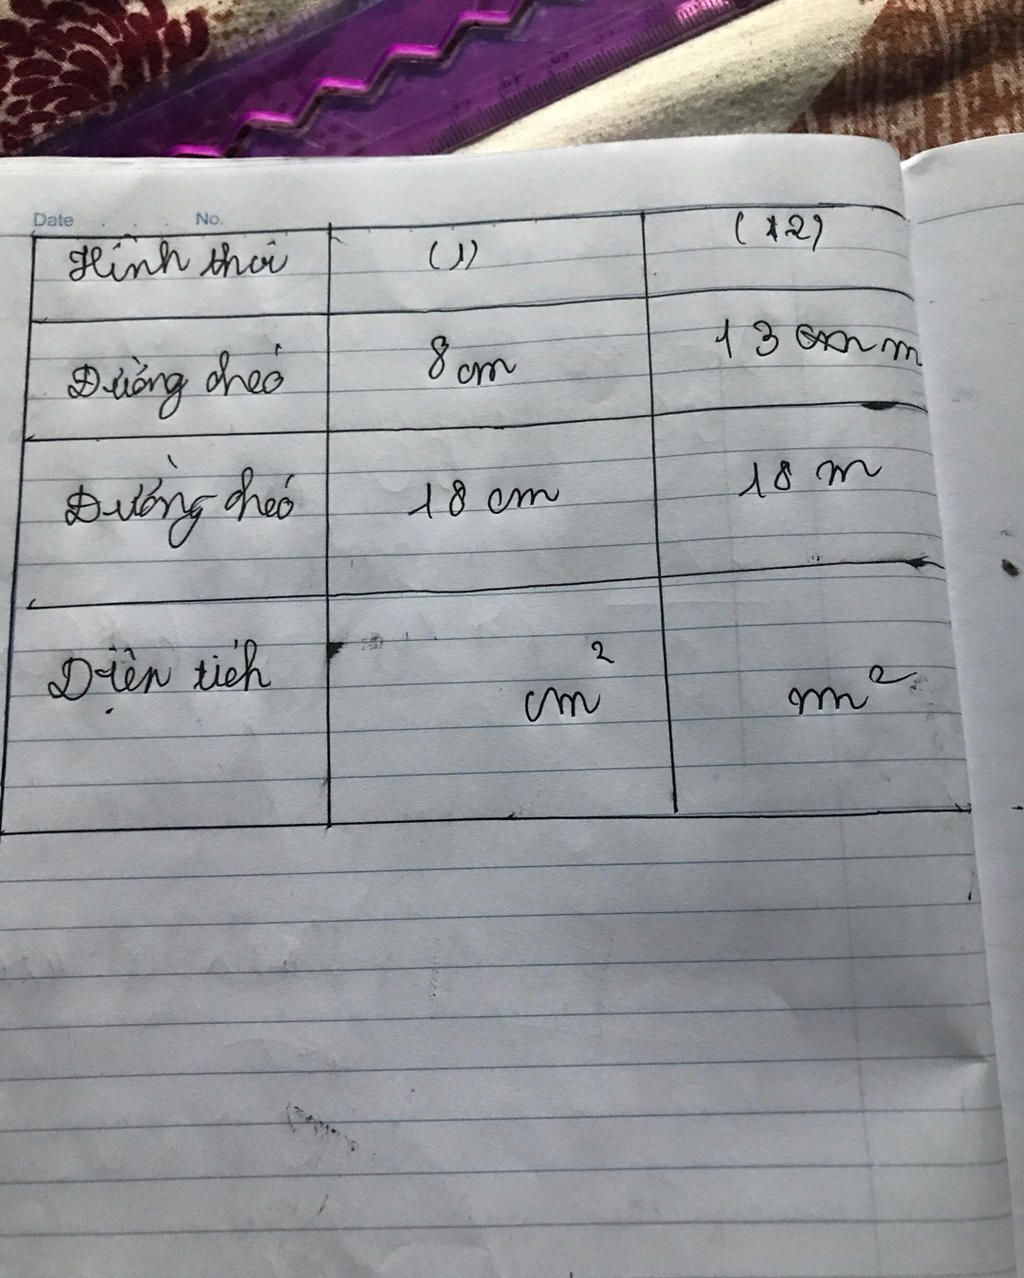 Date No.
Hình thoi (1) (2)
Đường chéo 8cm 13 m
Đường chéo 18 cm 18 m
Diện tích cm² m²